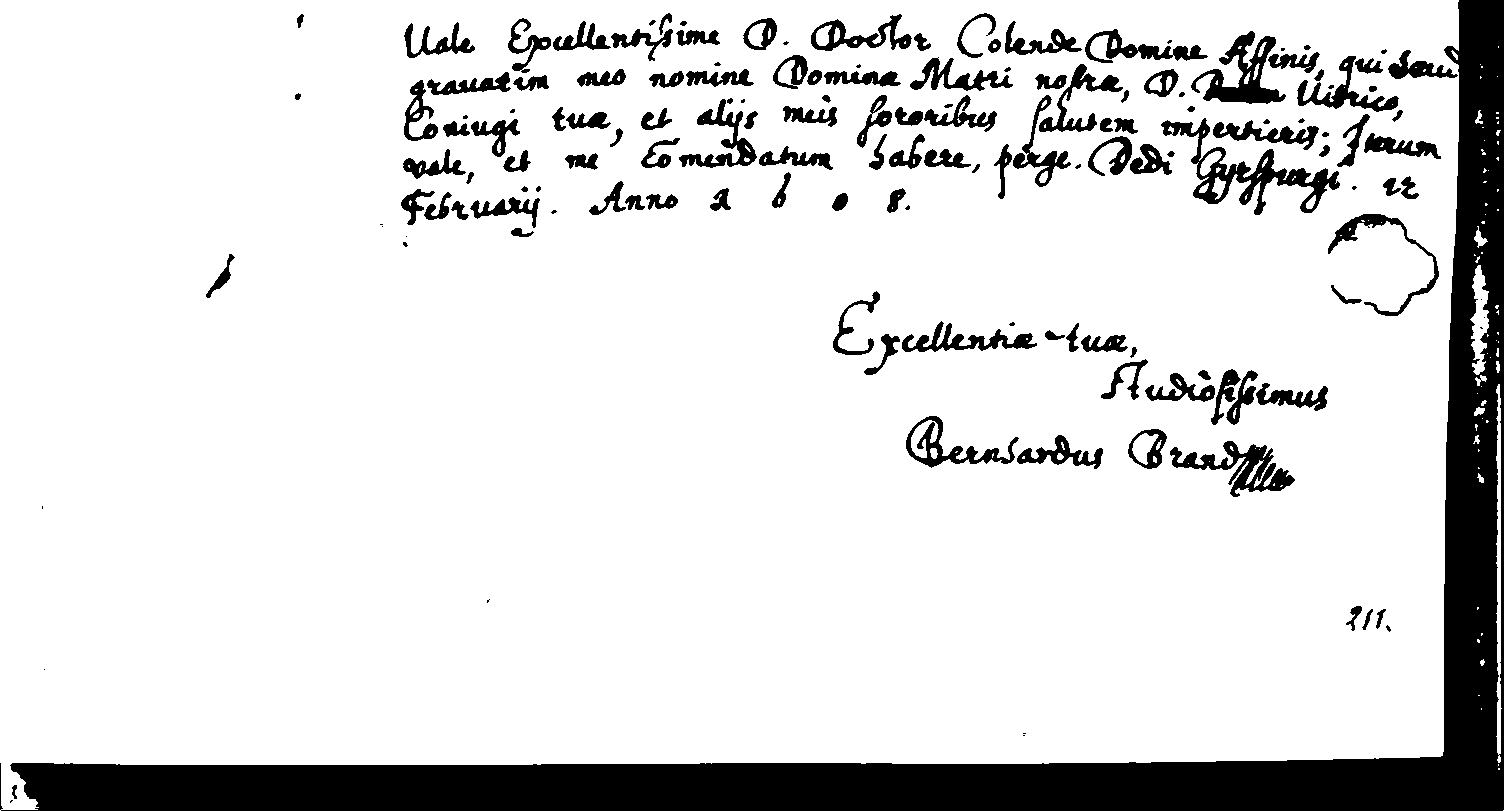 Vale Excellentissime D. Doctor Colende Domine Affinis, qui haud
grauatim meo nomine Dominæ Matri nostræ, D. Vitrico,
Coniugi tuæ, et alijs meis sororibus salutem impertieris; Iterum
vale, et me comendatum habere, perge. Dedi Gyrspurgi. 12
Februarij. Anno 1608.
Excellentiæ tuæ,
Studiosissimus
Bernhardus Brand
211.